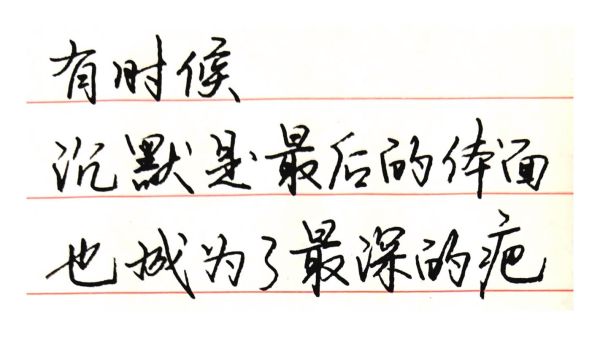 有时候
沉默是最后的体面
也成为了最深的疤